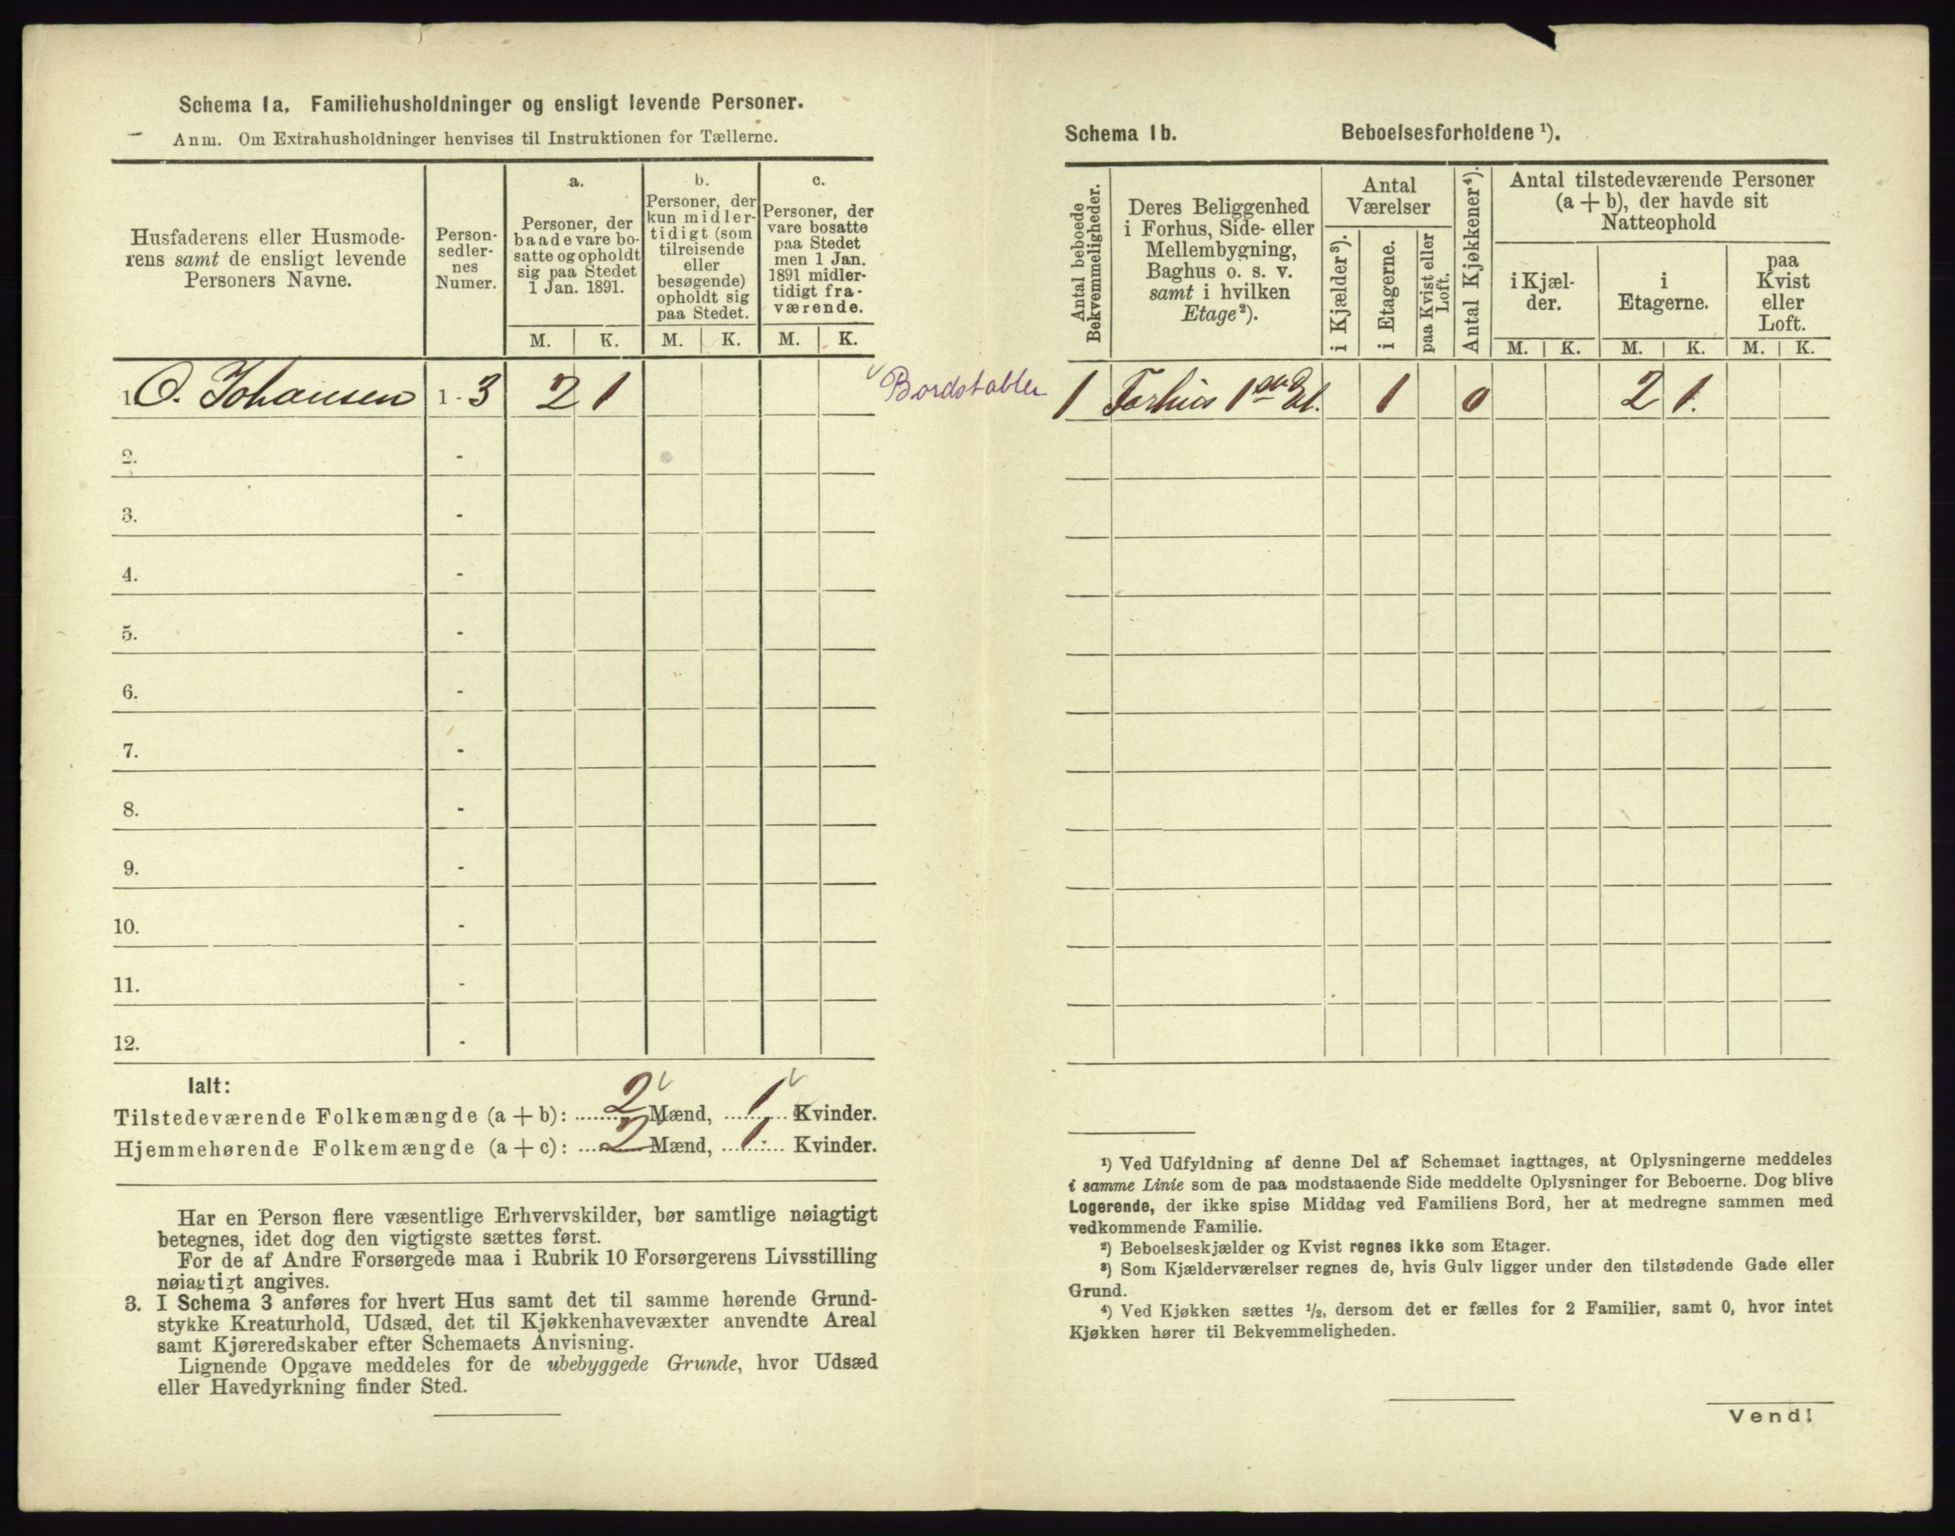 Schema 1a. Familiehusholdninger og ensligt levende Personer.
Anm. Om Extrahusholdninger henvises til Instruktionen for Tællerne.
Husfaderens eller Husmode-
rens samt de ensligt levende
Personers Navne.
Person-
sedler-
nes
Numer.
a.
Personer, der
baade vare bo-
satte og opholdt
sig paa Stedet
1 Jan. 1891.
b.
Personer, der
kun midler-
tidigt (som
tilreisende
eller
besøgende)
opholdt sig
paa Stedet.
c.
Personer, der
vare bosatte
paa Stedet
men 1 Jan.
1891 midler-
tidigt fra-
værende.
M. K. M. K. M. K.
1. O. Johansen 1 - 3 2 1
Bordstabler
2. -
3. -
4. -
5. -
6. -
7. -
8. -
9. -
10. -
11. -
12. -
Ialt:
Tilstedeværende Folkemængde (a + b): 2 Mænd, 1 Kvinder.
Hjemmehørende Folkemængde (a + c): 2 Mænd, 1 Kvinder.
Har en Person flere væsentlige Erhvervskilder, bør samtlige nøiagtigt
betegnes, idet dog den vigtigste sættes først.
For de af Andre Forsørgede maa i Rubrik 10 Forsørgerens Livsstilling
nøiagtigt angives.
3. I Schema 3 anføres for hvert Hus samt det til samme hørende Grund-
stykke Kreaturhold, Udsæd, det til Kjøkkenhavevæxter anvendte Areal
samt Kjøreredskaber efter Schemaets Anvisning.
Lignende Opgave meddeles for de ubebyggede Grunde, hvor Udsæd
eller Havedyrkning finder Sted.
Schema 1b. Beboelsesforholdene ¹).
Antal beboede
Bekvemmeligheder.
Deres Beliggenhed
i Forhus, Side- eller
Mellembygning,
Baghus o. s. v.
samt i hvilken
Etage²).
Antal
Værelser
i Kjælder³).
i Etagerne.
paa Kvist eller
Loft.
Antal Kjøkkener⁴).
Antal tilstedeværende Personer
(a + b), der havde sit
Natteophold
i Kjæl-
der.
i
Etagerne.
paa
Kvist
eller
Loft.
M. K. M. K. M. K.
1 Forhus 1ste Et. 1 0 2 1.
¹) Ved Udfyldning af denne Del af Schemaet iagttages, at Oplysningerne meddeles
i samme Linie som de paa modstaaende Side meddelte Oplysninger for Beboerne. Dog blive
Logerende, der ikke spise Middag ved Familiens Bord, her at medregne sammen med
vedkommende Familie.
²) Beboelseskjælder og Kvist regnes ikke som Etager.
³) Som Kjælderværelser regnes de, hvis Gulv ligger under den tilstødende Gade eller
Grund.
⁴) Ved Kjøkken sættes ½, dersom det er fælles for 2 Familier, samt 0, hvor intet
Kjøkken hører til Bekvemmeligheden.
Vend!